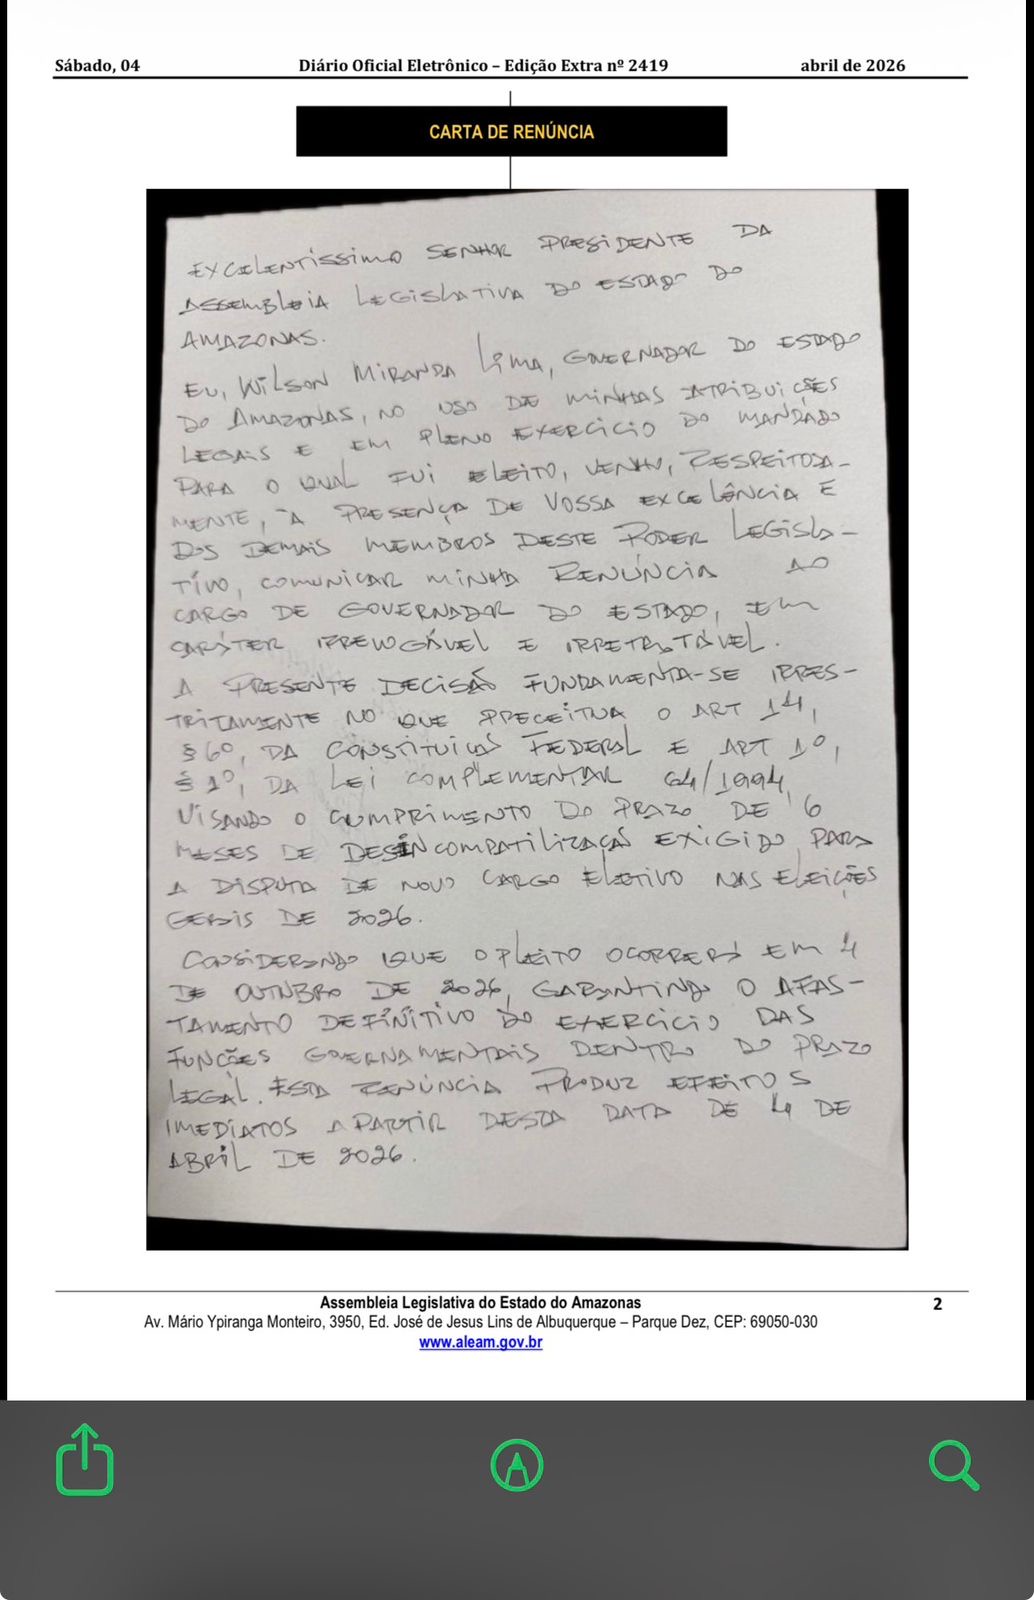 Sábado, 04 Diário Oficial Eletrônico – Edição Extra nº 2419 abril de 2026
CARTA DE RENÚNCIA
EXCELENTÍSSIMO SENHOR PRESIDENTE DA
ASSEMBLEIA LEGISLATIVA DO ESTADO DO
AMAZONAS.
EU, WILSON MIRANDA LIMA, GOVERNADOR DO ESTADO
DO AMAZONAS, NO USO DE MINHAS ATRIBUIÇÕES
LEGAIS E EM PLENO EXERCÍCIO DO MANDADO
PARA O QUAL FUI ELEITO, VENHO, RESPEITOSA-
MENTE, À PRESENÇA DE VOSSA EXCELÊNCIA E
DOS DEMAIS MEMBROS DESTE PODER LEGISLA-
TIVO, COMUNICAR MINHA RENÚNCIA AO
CARGO DE GOVERNADOR DO ESTADO, EM
CARÁTER IRREVOGÁVEL E IRRETRATÁVEL.
A PRESENTE DECISÃO FUNDAMENTA-SE IRRES-
TRITAMENTE NO QUE PRECEITUA O ART 14,
§ 6º, DA CONSTITUIÇÃO FEDERAL E ART 1º,
§ 1º, DA LEI COMPLEMENTAR 64/1994,
VISANDO O CUMPRIMENTO DO PRAZO DE 6
MESES DE DESINCOMPATILIZAÇÃO EXIGIDO PARA
A DISPUTA DE NOVO CARGO ELETIVO NAS ELEIÇÕES
GERAIS DE 2026.
CONSIDERANDO QUE O PLEITO OCORRERÁ EM 4
DE OUTUBRO DE 2026, GARANTINDO O AFAS-
TAMENTO DEFINITIVO DO EXERCÍCIO DAS
FUNÇÕES GOVERNAMENTAIS DENTRO DO PRAZO
LEGAL. ESTA RENÚNCIA PRODUZ EFEITOS
IMEDIATOS A PARTIR DESTA DATA DE 4 DE
ABRIL DE 2026.
Assembleia Legislativa do Estado do Amazonas 2
Av. Mário Ypiranga Monteiro, 3950, Ed. José de Jesus Lins de Albuquerque – Parque Dez, CEP: 69050-030
www.aleam.gov.br